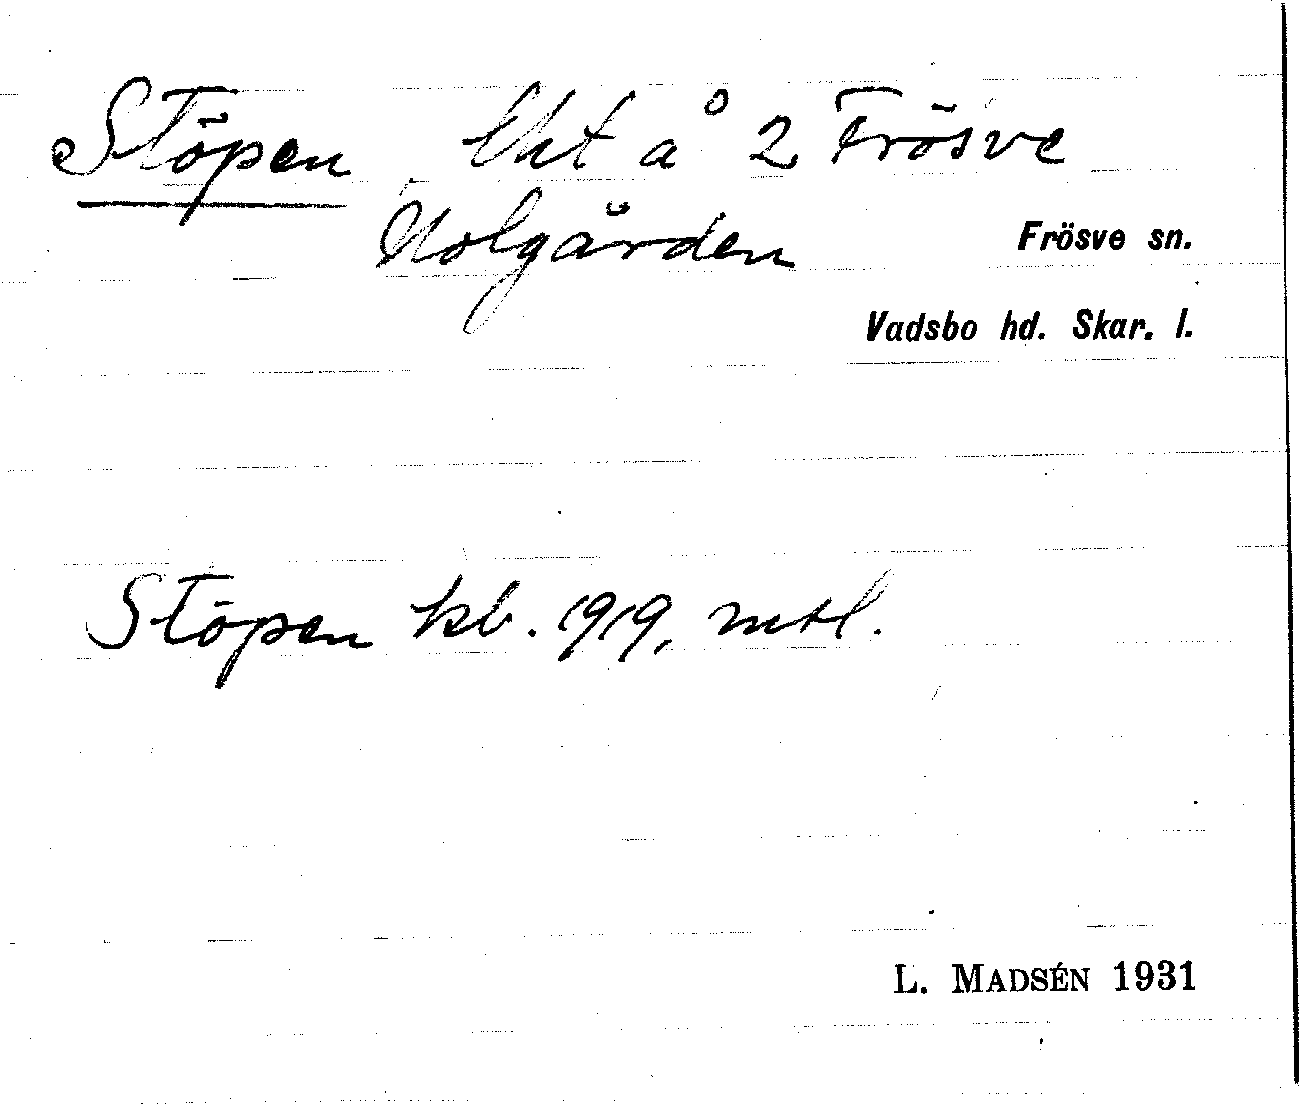 Stöpen lht å 2 Frösve
Nolgården
Frösve sn.
Vadsbo hd. Skar. l.
Stöpen kb. 1919, mtl.
L. MADSÉN 1931